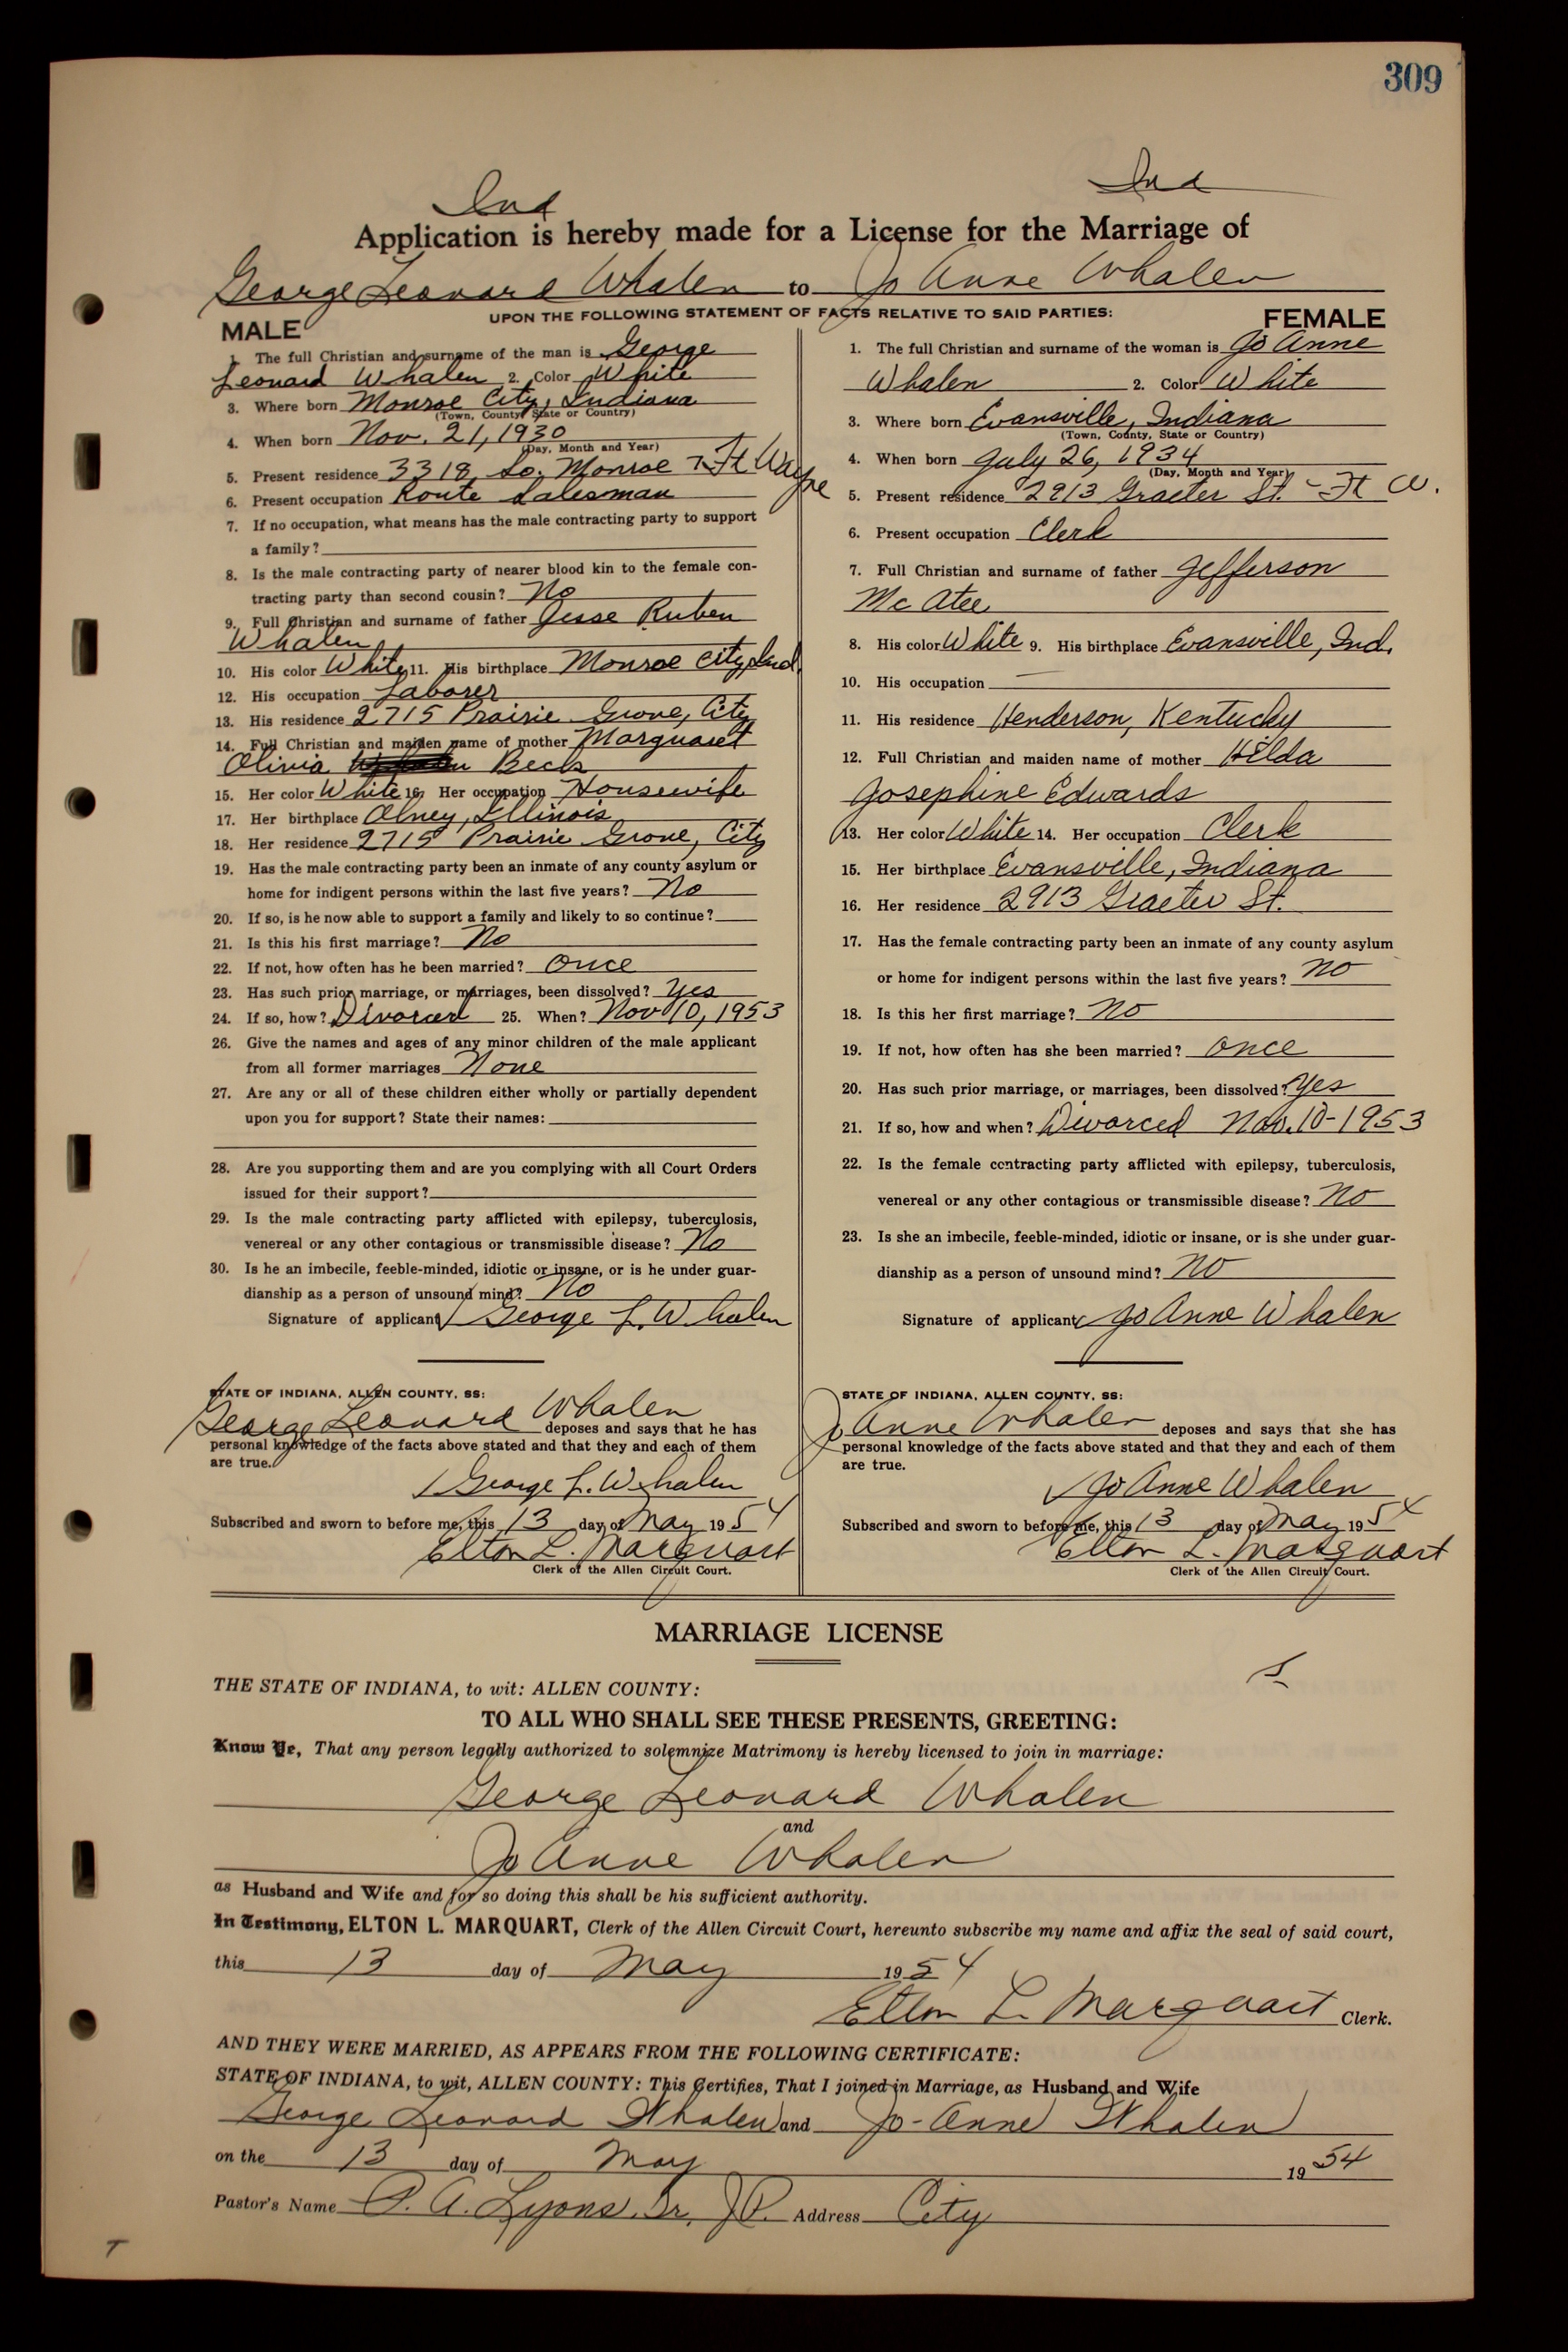 309
Ind
Ind
Application is hereby made for a License for the Marriage of
George Leonard Whalen to Jo Anne Whalen
UPON THE FOLLOWING STATEMENT OF FACTS RELATIVE TO SAID PARTIES:
MALE
1. The full Christian and surname of the man is George
Leonard Whalen 2. Color White
3. Where born Monroe City, Indiana
(Town, County, State or Country)
4. When born Nov. 21, 1930
(Day, Month and Year)
5. Present residence 3318 So. Monroe - Ft Wayne
6. Present occupation Route Salesman
7. If no occupation, what means has the male contracting party to support
a family?
8. Is the male contracting party of nearer blood kin to the female con-
tracting party than second cousin? No
9. Full Christian and surname of father Jesse Ruben
Whalen
10. His color White 11. His birthplace Monroe City, Ind.
12. His occupation Laborer
13. His residence 2715 Prairie Grove, City
14. Full Christian and maiden name of mother Marguaret
Olivia Beck
15. Her color White 16. Her occupation Housewife
17. Her birthplace Olney, Illinois
18. Her residence 2715 Prairie Grove, City
19. Has the male contracting party been an inmate of any county asylum or
home for indigent persons within the last five years? No
20. If so, is he now able to support a family and likely to so continue?
21. Is this his first marriage? No
22. If not, how often has he been married? Once
23. Has such prior marriage, or marriages, been dissolved? Yes
24. If so, how? Divorced 25. When? Nov 10, 1953
26. Give the names and ages of any minor children of the male applicant
from all former marriages None
27. Are any or all of these children either wholly or partially dependent
upon you for support? State their names:
28. Are you supporting them and are you complying with all Court Orders
issued for their support?
29. Is the male contracting party afflicted with epilepsy, tuberculosis,
venereal or any other contagious or transmissible disease? No
30. Is he an imbecile, feeble-minded, idiotic or insane, or is he under guar-
dianship as a person of unsound mind? No
Signature of applicant George L. Whalen
STATE OF INDIANA, ALLEN COUNTY, SS:
George Leonard Whalen deposes and says that he has
personal knowledge of the facts above stated and that they and each of them
are true.
George L. Whalen
Subscribed and sworn to before me, this 13 day of May 1954
Elton L. Marquart
Clerk of the Allen Circuit Court.
FEMALE
1. The full Christian and surname of the woman is Jo Anne
Whalen 2. Color White
3. Where born Evansville, Indiana
(Town, County, State or Country)
4. When born July 26, 1934
(Day, Month and Year)
5. Present residence 2913 Graeter St. - Ft W.
6. Present occupation Clerk
7. Full Christian and surname of father Jefferson
Mc Atee
8. His color White 9. His birthplace Evansville, Ind.
10. His occupation —
11. His residence Henderson, Kentucky
12. Full Christian and maiden name of mother Hilda
Josephine Edwards
13. Her color White 14. Her occupation Clerk
15. Her birthplace Evansville, Indiana
16. Her residence 2913 Graeter St.
17. Has the female contracting party been an inmate of any county asylum
or home for indigent persons within the last five years? No
18. Is this her first marriage? No
19. If not, how often has she been married? Once
20. Has such prior marriage, or marriages, been dissolved? Yes
21. If so, how and when? Divorced Nov. 10-1953
22. Is the female contracting party afflicted with epilepsy, tuberculosis,
venereal or any other contagious or transmissible disease? No
23. Is she an imbecile, feeble-minded, idiotic or insane, or is she under guar-
dianship as a person of unsound mind? No
Signature of applicant Jo Anne Whalen
STATE OF INDIANA, ALLEN COUNTY, SS:
Jo Anne Whalen deposes and says that she has
personal knowledge of the facts above stated and that they and each of them
are true.
Jo Anne Whalen
Subscribed and sworn to before me, this 13 day of May 1954
Elton L. Marquart
Clerk of the Allen Circuit Court.
MARRIAGE LICENSE
THE STATE OF INDIANA, to wit: ALLEN COUNTY:
TO ALL WHO SHALL SEE THESE PRESENTS, GREETING:
Know Ye, That any person legally authorized to solemnize Matrimony is hereby licensed to join in marriage:
George Leonard Whalen
and
Jo Anne Whalen
as Husband and Wife and for so doing this shall be his sufficient authority.
In Testimony, ELTON L. MARQUART, Clerk of the Allen Circuit Court, hereunto subscribe my name and affix the seal of said court,
this 13 day of May 1954
Elton L. Marquart Clerk.
AND THEY WERE MARRIED, AS APPEARS FROM THE FOLLOWING CERTIFICATE:
STATE OF INDIANA, to wit, ALLEN COUNTY: This Certifies, That I joined in Marriage, as Husband and Wife
George Leonard Whalen and Jo-Anne Whalen
on the 13 day of May 1954
Pastor's Name P. A. Lyons, Sr, J.P. Address City
T